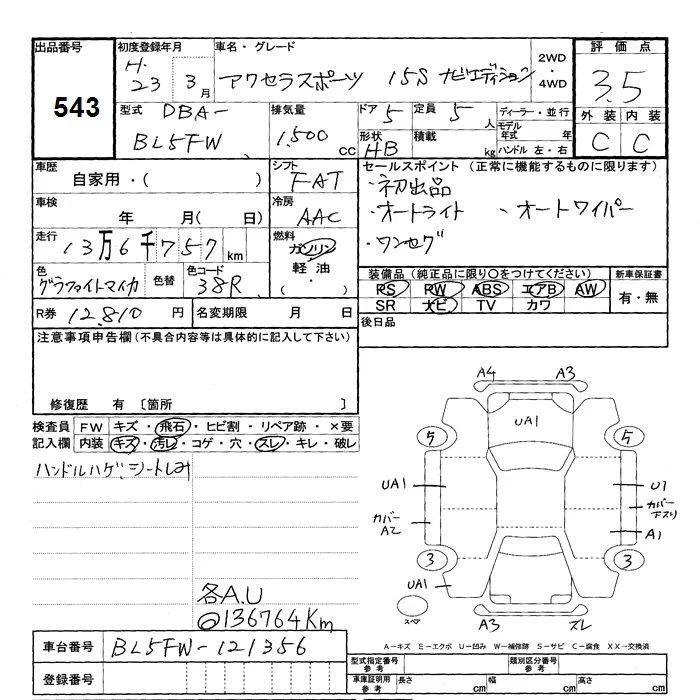 出品番号
543
初度登録年月
H.
23 3月
車名・グレード
アクセラスポーツ 15S ナビエディション
2WD
・
4WD
評価点
3.5
外装 内装
C C
型式 DBA-
BL5FW
排気量
1.500
CC
ドア 5
定員 5人
形状
HB
積載
kg
ディーラー・並行
モデル年式 年
ハンドル 左・右
車歴
自家用・( )
シフト
FAT
車検
年 月( 日)
冷房
AAC
走行
13万6千757km
燃料
ガソリン
軽油
( ・ )
色
グラファイトマイカ
色替
色コード
38R
R券 12.810 円
名変期限 月 日
セールスポイント (正常に機能するものに限ります)
・初出品
・オートライト 、オートワイパー
・ワンセグ
装備品 (純正品に限り○をつけてください)
PS PW ABS エアB AW
SR ナビ TV カワ
新車保証書
有・無
後日品
注意事項申告欄 (不具合内容等は具体的に記入して下さい)
修復歴 有 〔箇所 〕
検査員記入欄
FW キズ・飛石・ヒビ割・リペア跡・×要
内装 キズ・汚レ・コゲ・穴・スレ・キレ・破レ
ハンドルハゲ、シートしみ
各A.U
◎136764Km
A4 A3
UA1
5 5
UA1
U1
カバー
下スリ
カバー
A2
A1
3 3
UA1
スペア
A3 ズレ
A-キズ E-エクボ U-凹み W-補修跡 S-サビ C-腐食 XX-交換済
車台番号 BL5FW-121356
登録番号
型式指定番号
参考
類別区分番号
参考
車庫証明用
参考
長さ cm 幅 cm 高さ cm